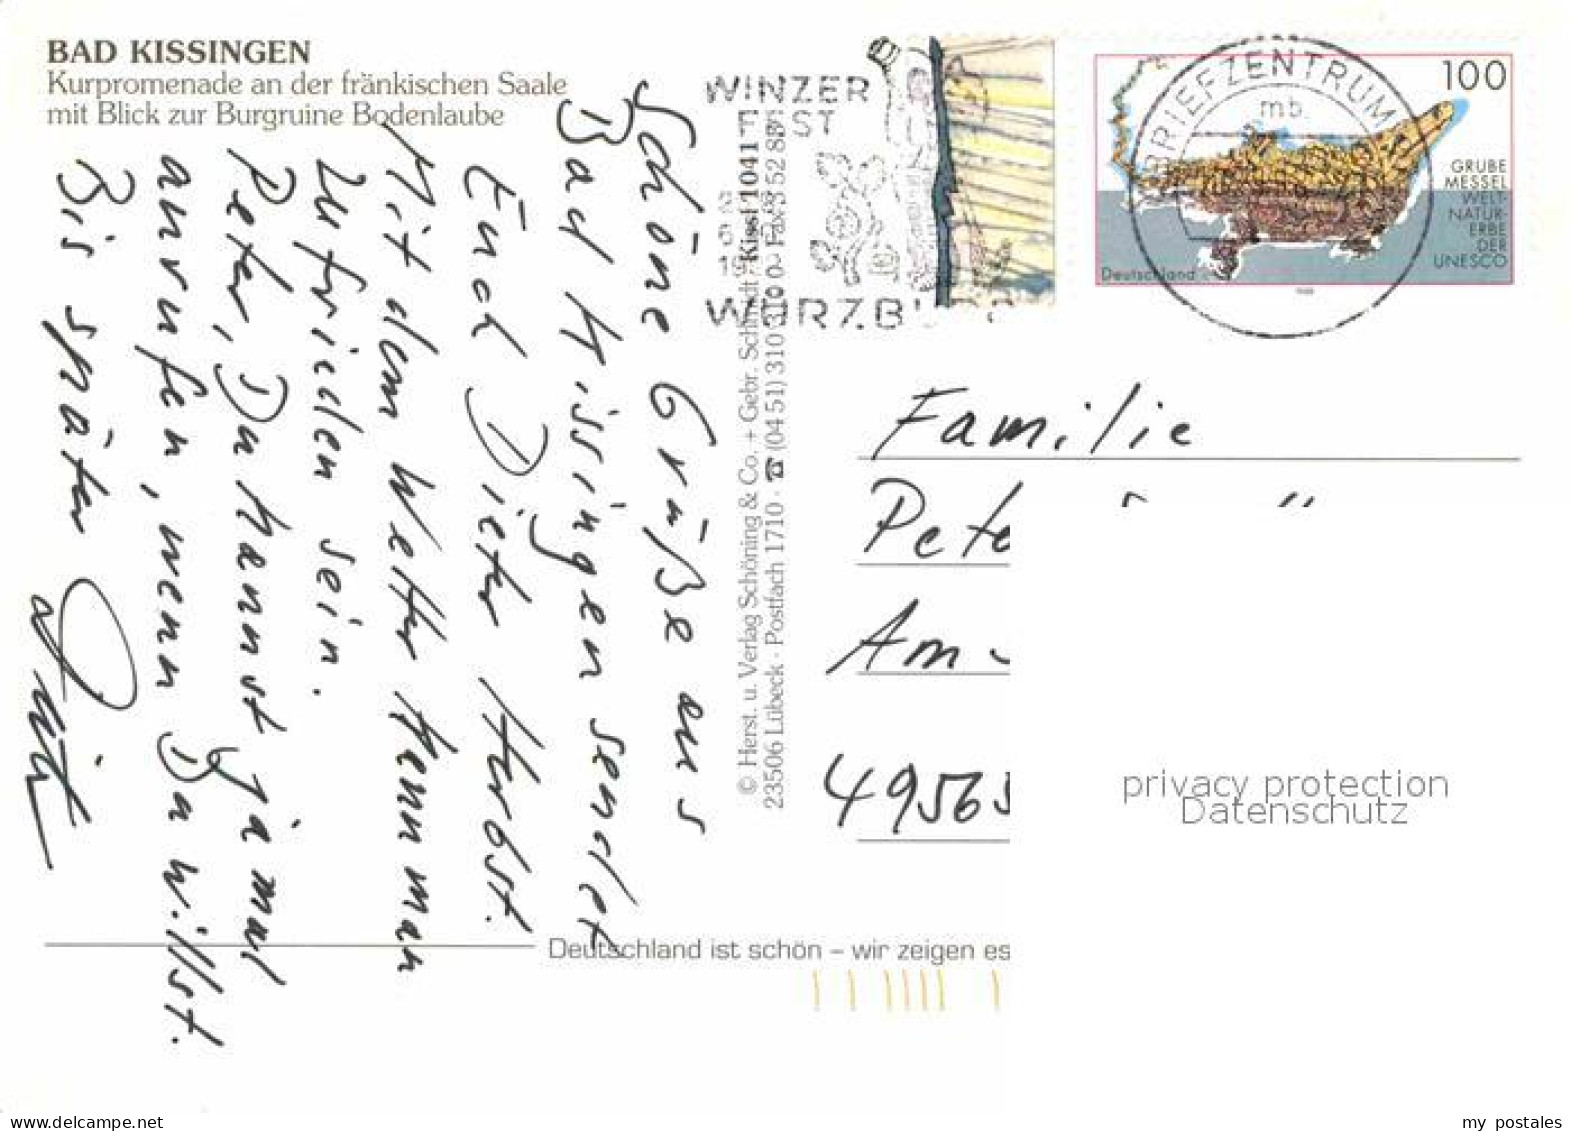 BAD KISSINGEN
Kurpromenade an der fränkischen Saale
mit Blick zur Burgruine Bodenlaube
Schöne Grüße aus
Bad Kissingen sendet
Euch Dieter Herbst.
Mit dem Wetter kann man
zufrieden sein.
Peter, Du kannst ja mal
anrufen, wenn Du willst.
Bis später
© Herst. u. Verlag Schöning & Co. + Gebr. Schmidt · Kissl 1041
23506 Lübeck · Postfach 1710 · ☎ (04 51) 310 310
WINZER
WÜRZB
BRIEFZENTRUM
mb
100
GRUBE
MESSEL
WELT-
NATUR-
ERBE
DER
UNESCO
Deutschland
Familie
Pete
Am
49565
privacy protection
Datenschutz
Deutschland ist schön – wir zeigen es
© delcampe.net
my_postales